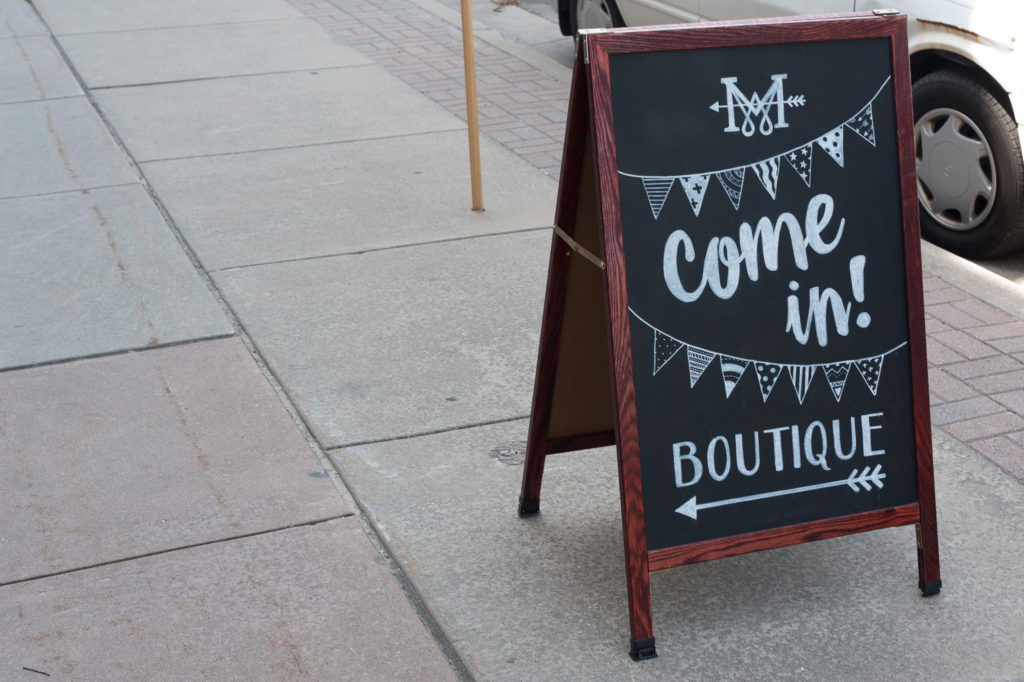 M
Come
in!
BOUTIQUE